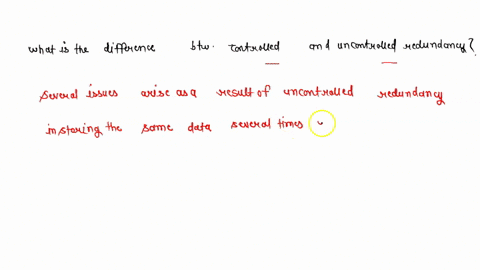 what is the difference btw. controlled and uncontrolled redundancy?
Several issues arise as a result of uncontrolled redundancy
in storing the same data several times